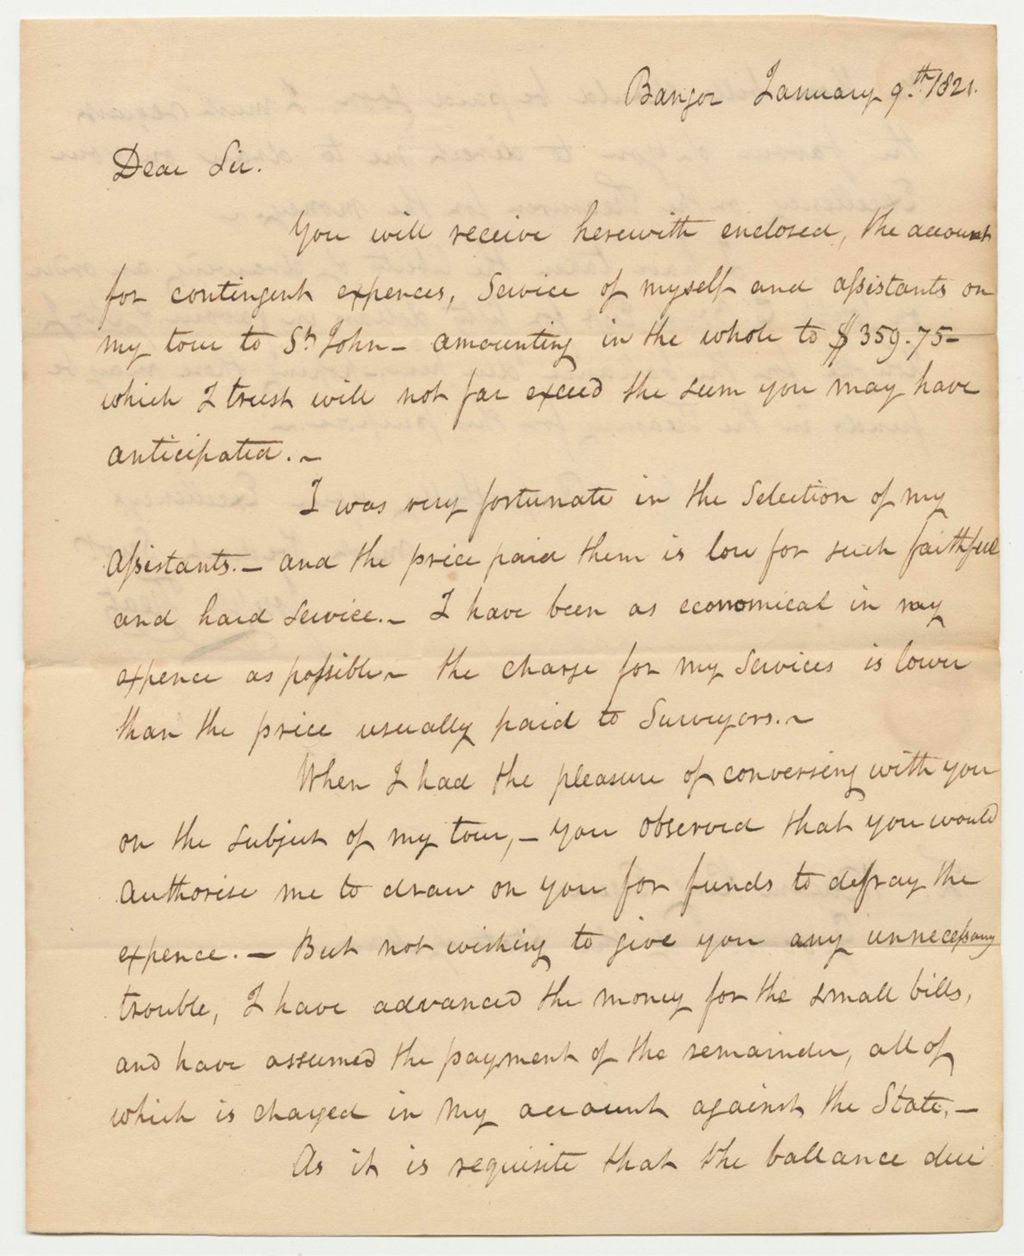 Bangor January 9th. 1821.
Dear Sir.
You will receive herewith enclosed, the account
for contingent expences, Service of myself and assistants on
my tour to St John - amounting in the whole to $359.75 -
which I trust will not far exceed the sum you may have
anticipated. -
I was very fortunate in the Selection of my
Assistants. - and the price paid them is low for such faithful
and hard Service. - I have been as economical in my
expence as possible - the charge for my Services is lower
than the price usually paid to Surveyors. -
When I had the pleasure of conversing with you
on the subject of my tour, - you observed that you would
Authorise me to draw on you for funds to defray the
expence. - But not wishing to give you any unnecessary
trouble, I have advanced the money for the small bills,
and have assumed the payment of the remainder, all of
which is charged in my account against the State, -
As it is requisite that the ballance due